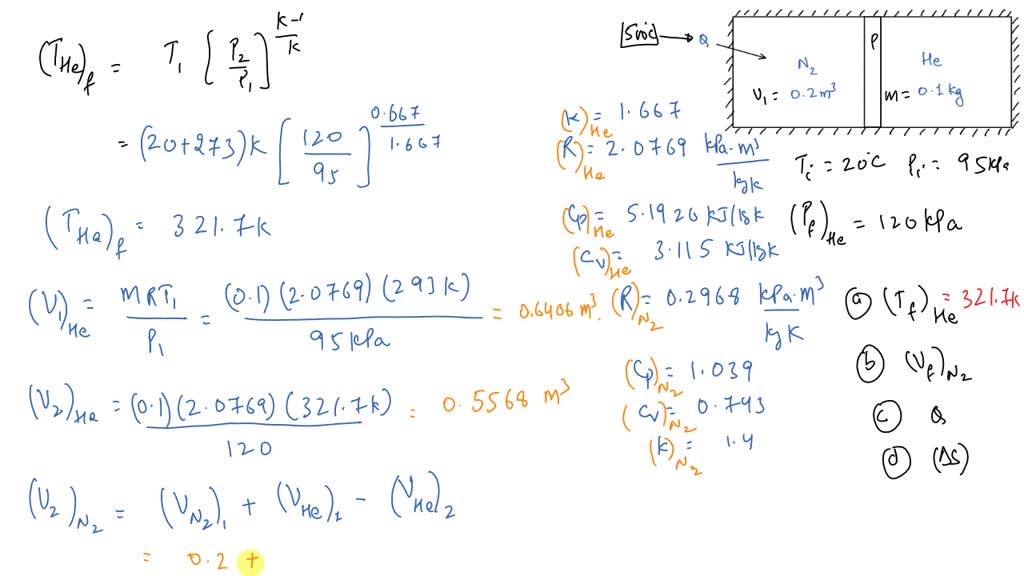 (T_He)_f = T_1 [P_2/P_1]^((k-1)/k)
= (20+273)k [120/95]^(0.667/1.667)
(T_He)_f = 321.7k
(V_1)_He = mRT_1/P_1 = (0.1)(2.0769)(293k)/95kPa = 0.6406 m³.
(V_2)_He = (0.1)(2.0769)(321.7k)/120 = 0.5568 m³
(V_2)_N2 = (V_N2)_1 + (V_He)_1 - (V_He)_2
= 0.2 +
500°C → Q
N_2
V_1 = 0.2m³
P
He
m = 0.1kg
(k)_He = 1.667
(R)_He = 2.0769 kPa·m³/kgk
(Cp)_He = 5.1920 kJ/kgk
(Cv)_He = 3.115 kJ/kgk
(R)_N2 = 0.2968 kPa·m³/kgK
(Cp)_N2 = 1.039
(Cv)_N2 = 0.743
(k)_N2 = 1.4
T_i = 20°C P_i = 95kPa
(P_f)_He = 120kPa
(a) (T_f)_He = 321.7k
(b) (V_f)_N2
(c) Q
(d) (ΔS)